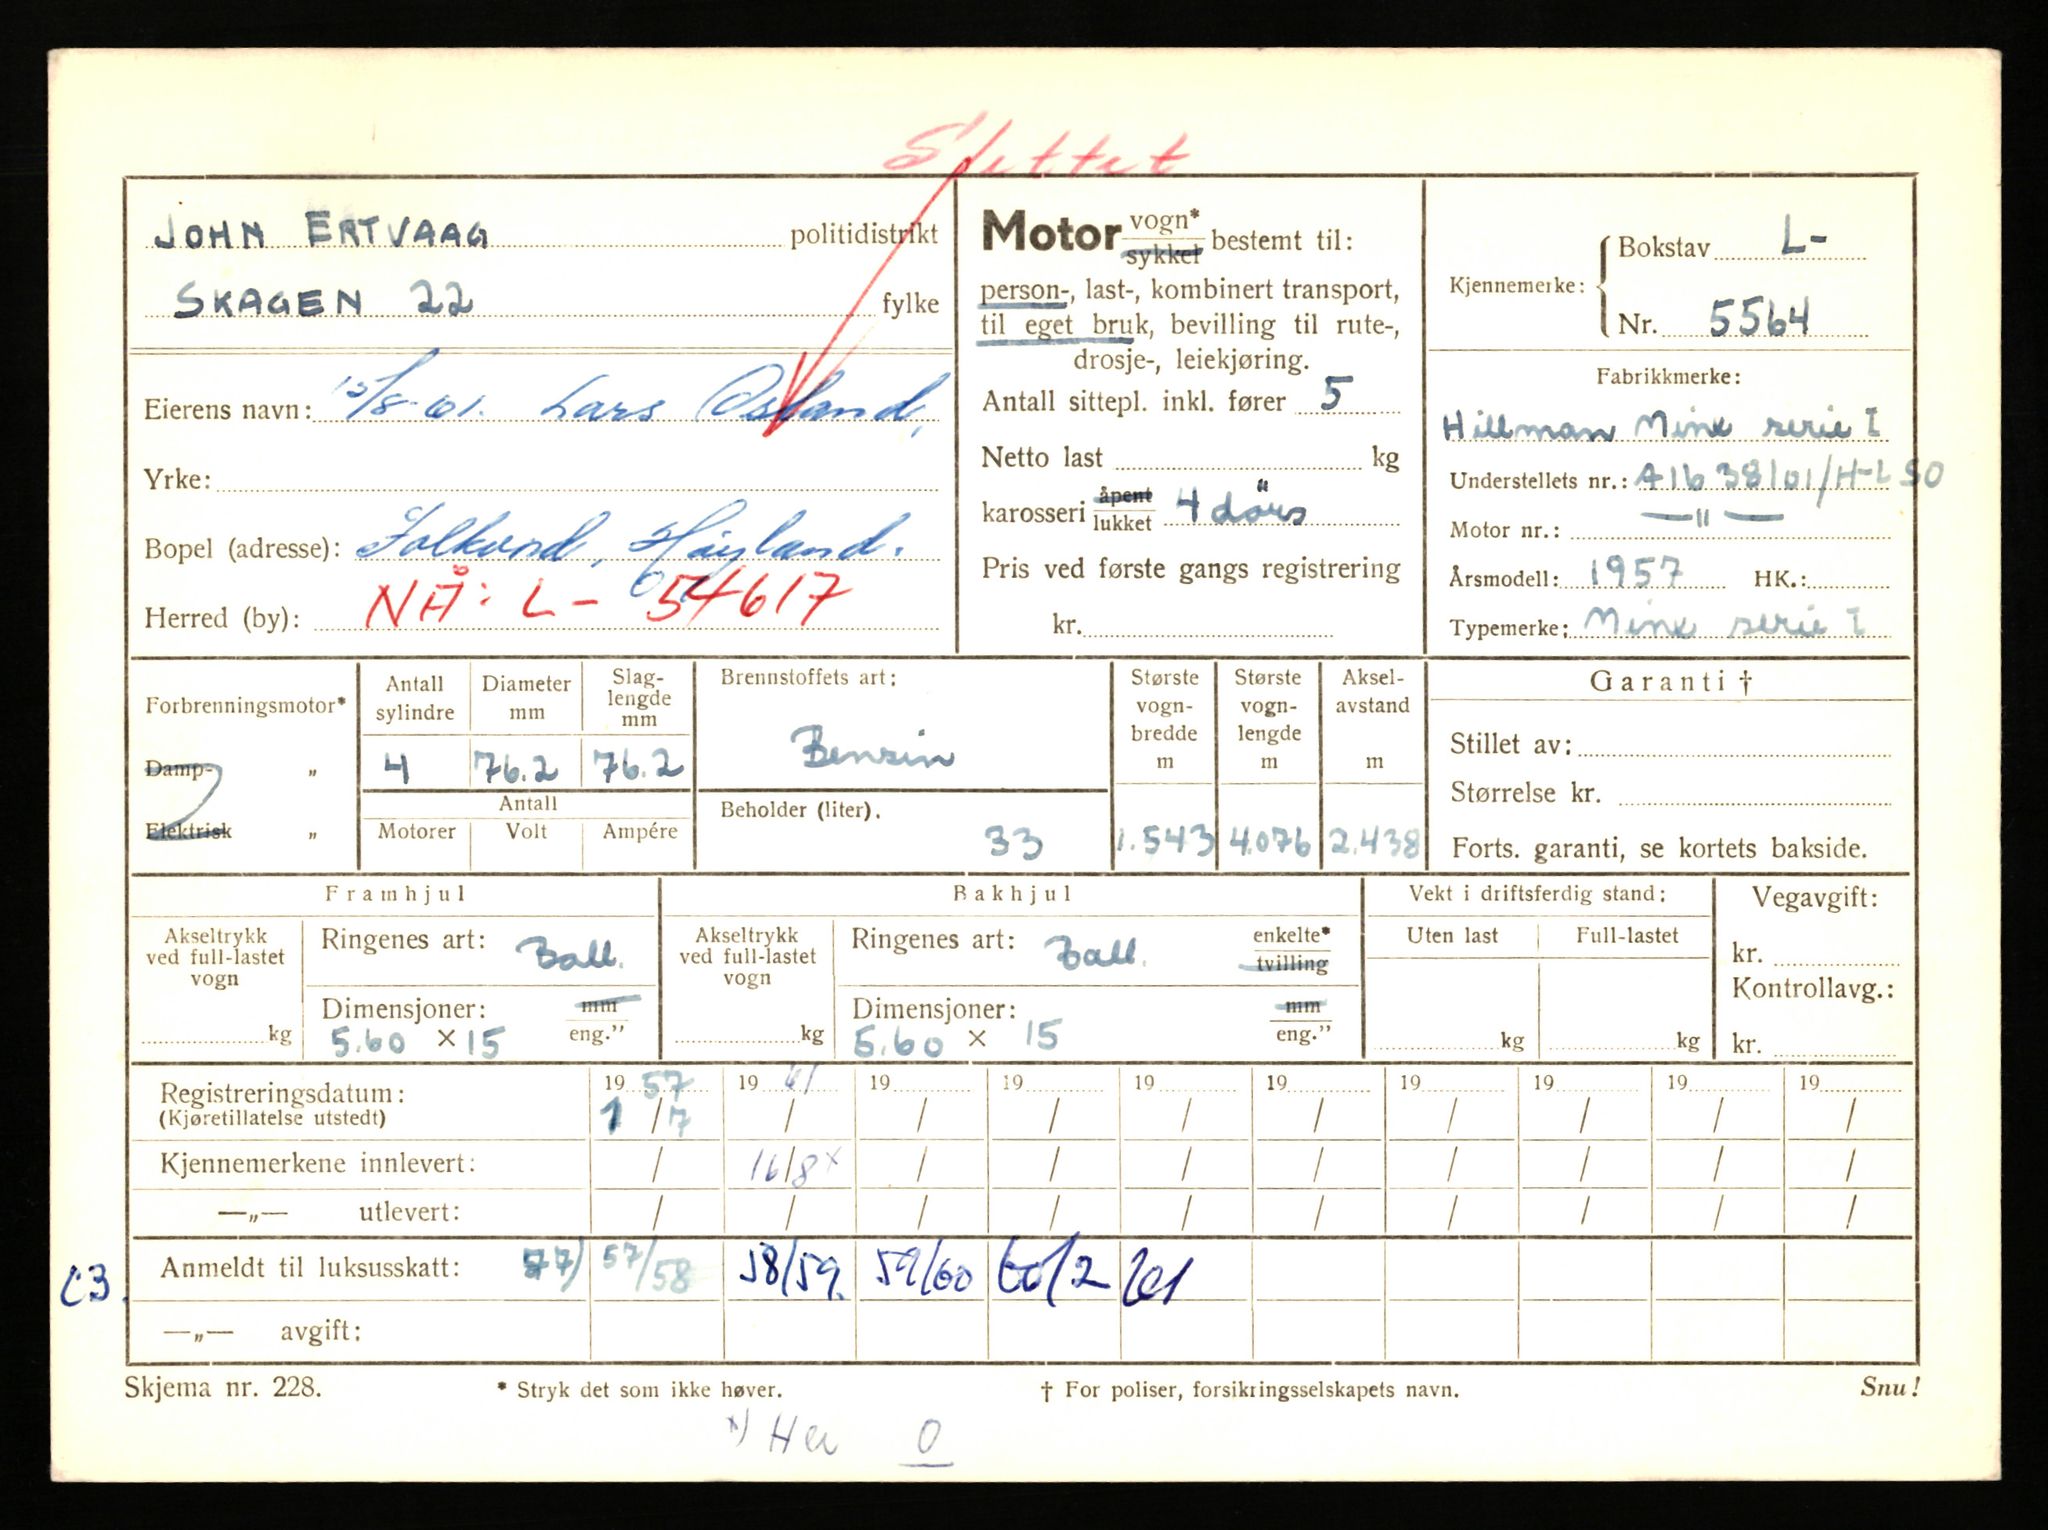 Slettet
JOHN ERTVAAG politidistrikt
SKAGEN 22 fylke
Eierens navn: 15/8-61. Lars Østland,
Yrke:
Bopel (adresse): Folkvord, Høyland.
Herred (by): NÅ: L- 54617
Motor vogn* sykkel bestemt til:
person-, last-, kombinert transport,
til eget bruk, bevilling til rute-,
drosje-, leiekjøring.
Antall sittepl. inkl. fører 5
Netto last kg
karosseri åpent lukket 4 dörs
Pris ved første gangs registrering
kr.
Kjennemerke: Bokstav L-
Nr. 5564
Fabrikkmerke:
Hillman Minx serie I
Understellets nr.: A1638101/H-LSO
Motor nr.: —"—
Årsmodell: 1957 HK.:
Typemerke: Minx serie I
Forbrenningsmotor*
Damp- „
Elektrisk „
Antall sylindre Diameter mm Slaglengde mm
4 76.2 76.2
Antall
Motorer Volt Ampére
Brennstoffets art:
Bensin
Beholder (liter).
33
Største vognbredde m Største vognlengde m Akselavstand m
1.543 4.076 2.438
Garanti †
Stillet av:
Størrelse kr.
Forts. garanti, se kortets bakside.
Framhjul
Akseltrykk ved full-lastet vogn
kg
Ringenes art: Ball.
Dimensjoner: mm
5.60 × 15 eng."
Bakhjul
Akseltrykk ved full-lastet vogn
kg
Ringenes art: Ball. enkelte* tvilling
Dimensjoner: mm
5.60 × 15 eng."
Vekt i driftsferdig stand:
Uten last Full-lastet
kg kg
Vegavgift:
kr.
Kontrollavg.:
kr.
Registreringsdatum: 19 57 19 61 19 19 19 19 19 19 19 19
(Kjøretillatelse utstedt) 1/7 / / / / / / / / /
Kjennemerkene innlevert: / 16/8 x / / / / / / / /
—„— utlevert: / / / / / / / / / /
C3. Anmeldt til luksusskatt: 57/58 58/59. 59/60 60/2 61
—„— avgift:
Skjema nr. 228. * Stryk det som ikke høver. † For poliser, forsikringsselskapets navn. Snu!
x) Her 0